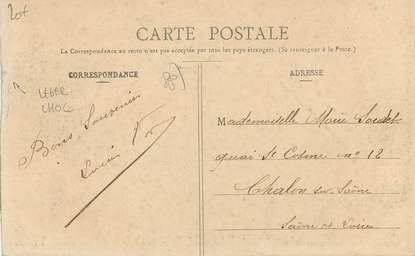 20+
CARTE POSTALE
La Correspondance au recto n'est pas acceptée par tous les pays étrangers. (Se renseigner à la Poste.)
CORRESPONDANCE
ADRESSE
LEGER
CHOC
Bons Souvenirs
Mademoiselle Marie
quai St Cosme no 12
Chalon sur Saône
Saône et Loire